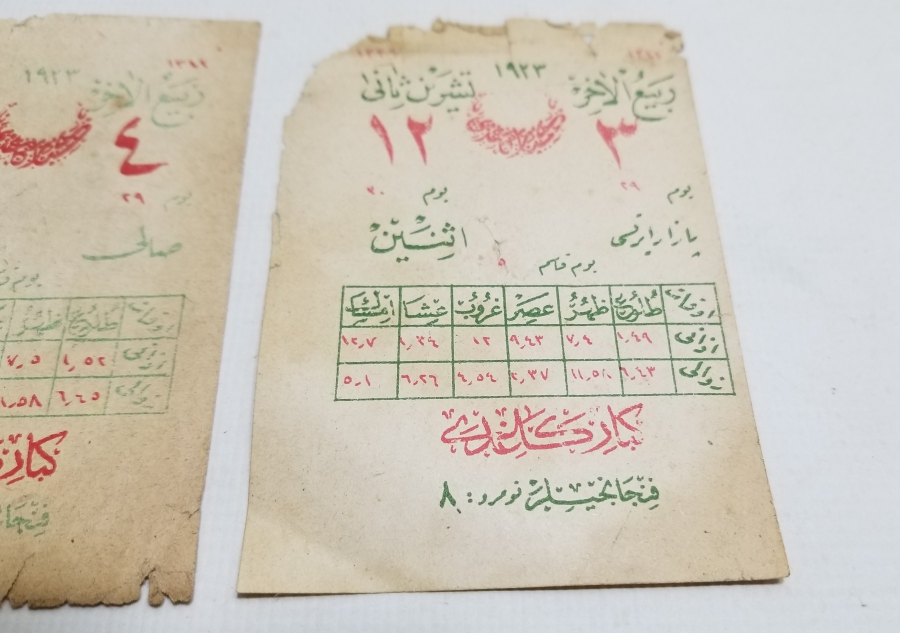 ١٩٢٣
ربيع الآخر
٤
يوم ٢٩
صالى
اوقات طلوع ظهر
ازوالى ١,٥٢ ٧,٥
زوالى ٦,٤٥ ١,٥٨
كبار
١٩٢٣
ربيع الآخر تشرين ثانى
٣ ١٢
يوم ٢٩ يوم ٣٠
پازار ايرتسى اثنين
يوم قاسم ٩
اوقات طلوع ظهر عصر غروب عشا امساك
ازوالى ١,٤٩ ٧,٤ ٩,٤٣ ١٢ ١,٣٤ ١٢,٧
زوالى ٦,٤٣ ١١,٥٨ ٢,٣٧ ٤,٥٤ ٦,٢٦ ٥,١
فنجانجيلر نومرو: ٨